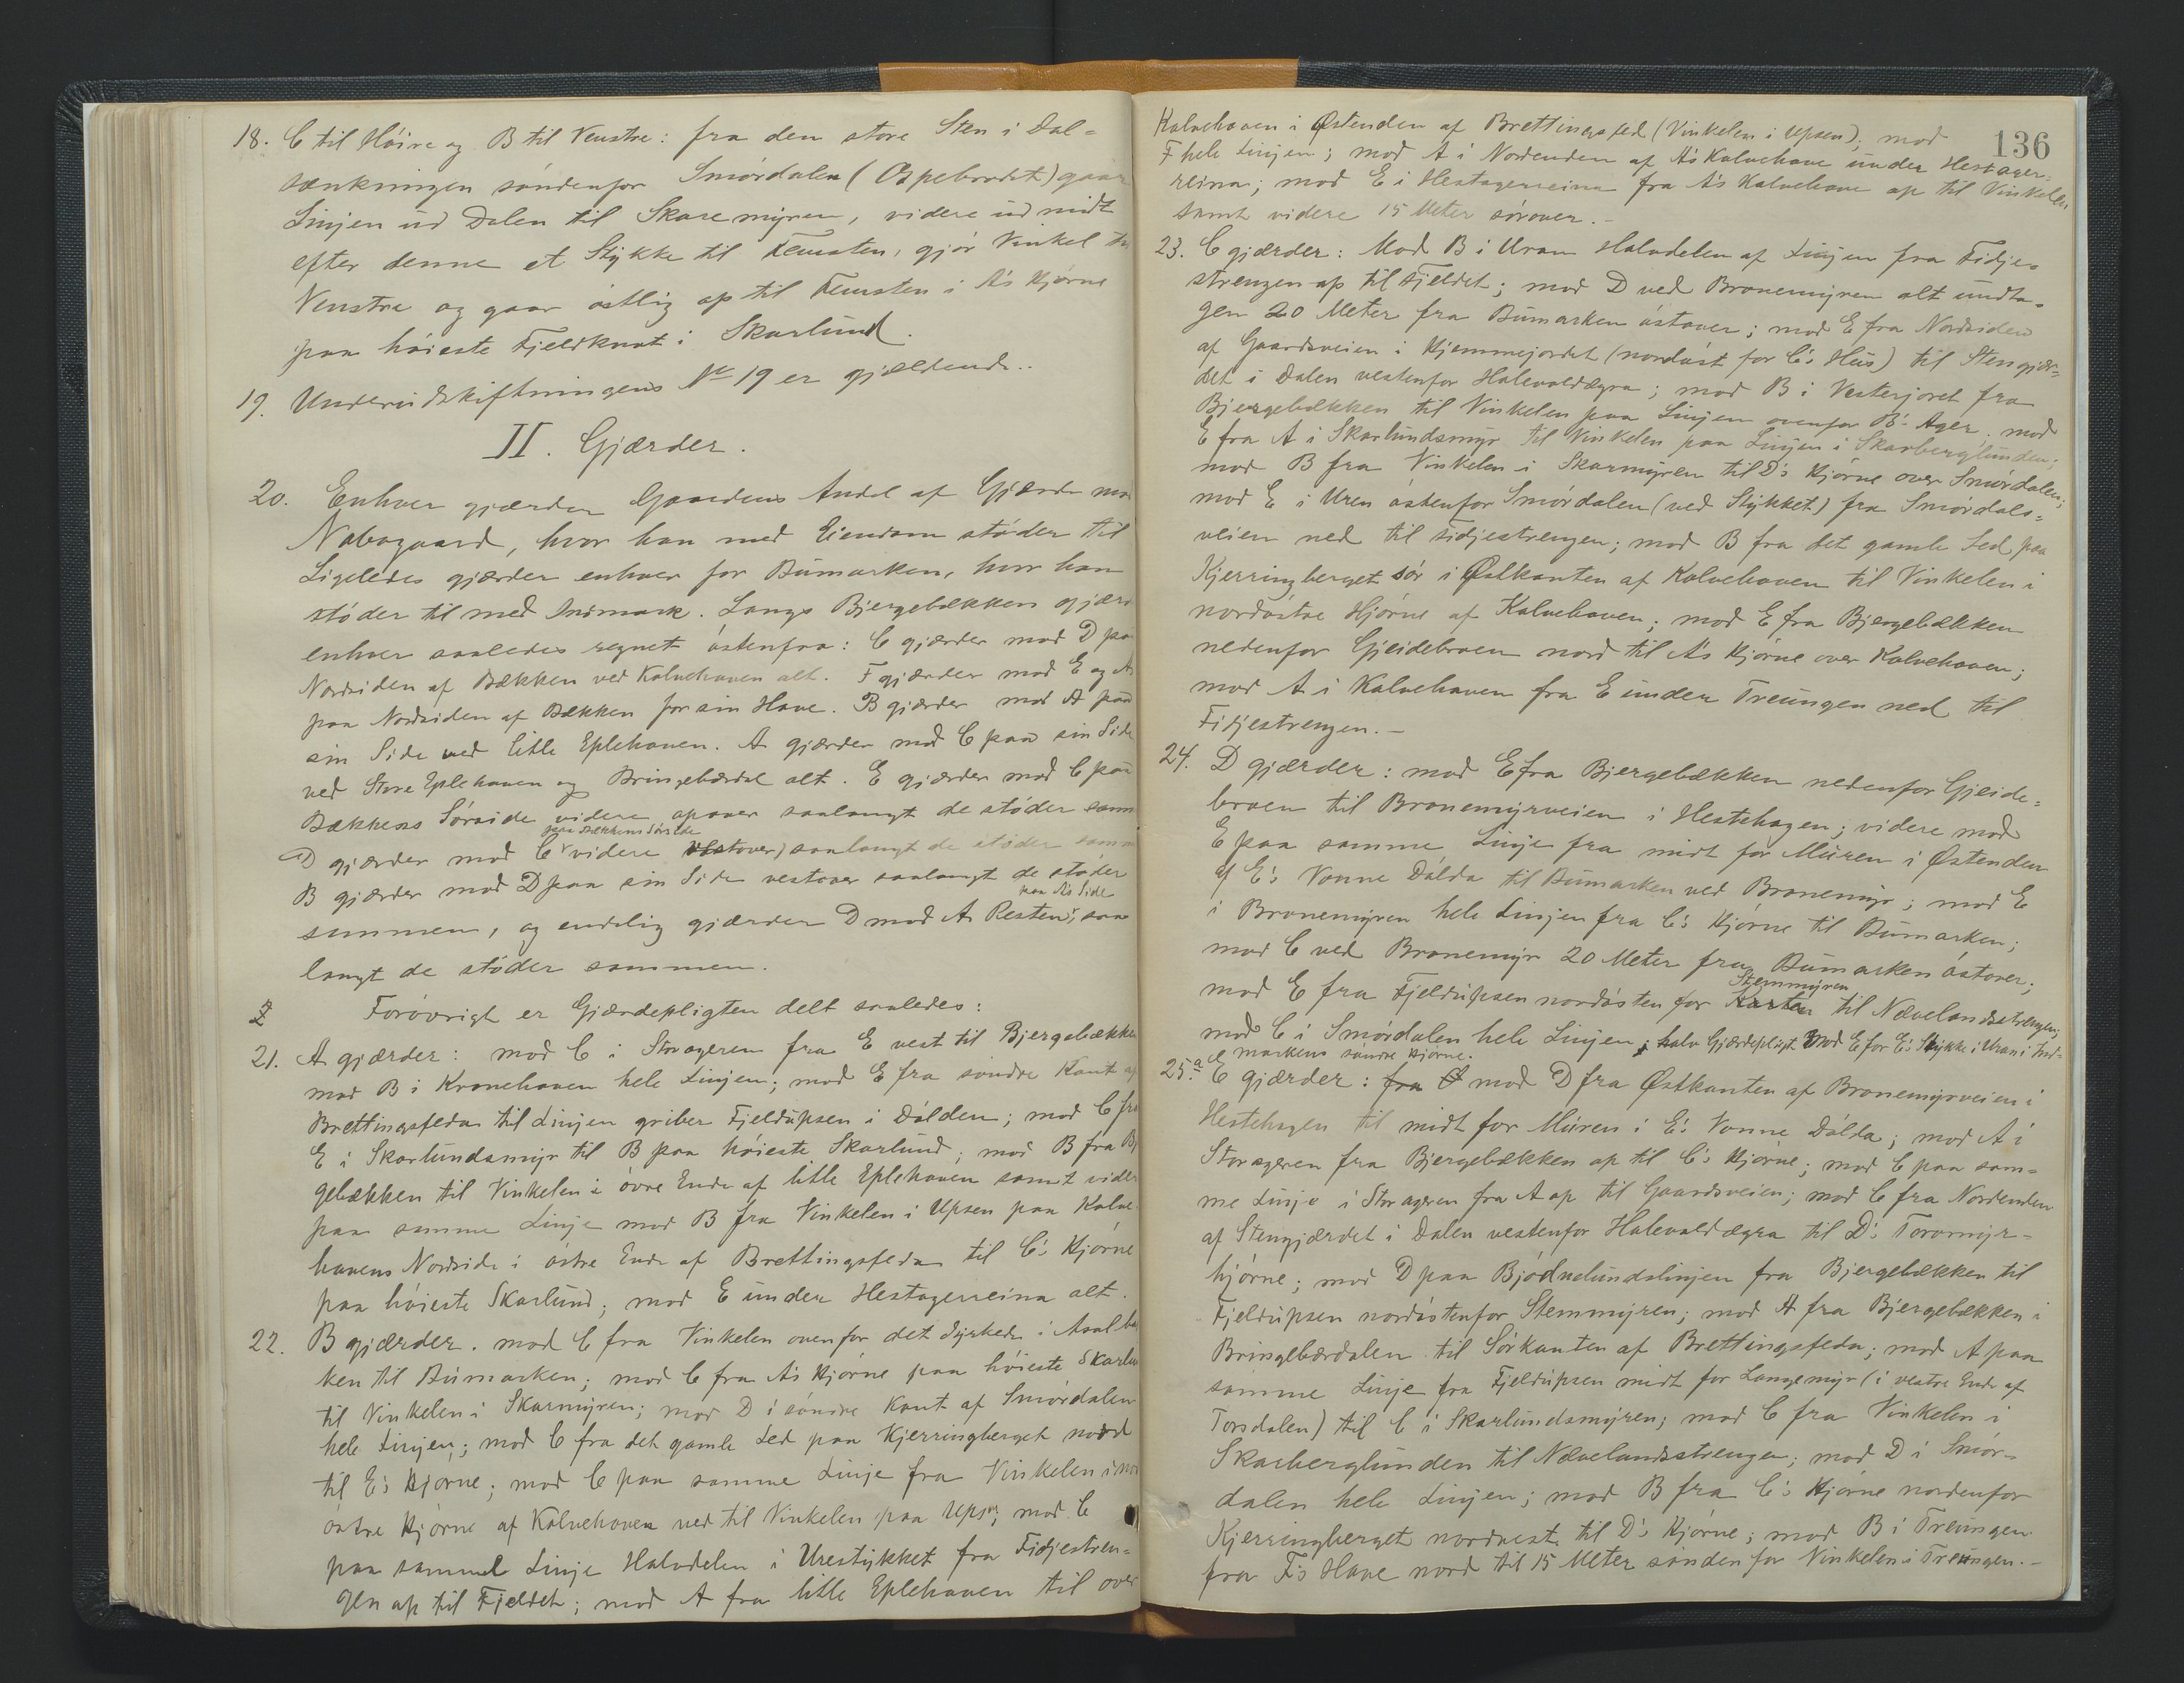 18. C til Höire og B til Venstre: fra den store Sten i Dal-
sænkningen söndenfor Smördalen (Ospebrodet) gaar
Linjen ud Dalen til Skaremyren, videre ud midt
efter denne et Stykke til Temsten, gjör Vinkel til
Venstre og gaar östlig op til Temsten i A's Hjörne
paa höieste Fjeldknat i Skarlund.
19. Underudskiftningens No 19 er gjældende..
II. Gjærder.
20. Enhver gjærder Gaardens Andel af Gjærde mod
Nabogaard, hvor han med Eiendom stöder til
Ligeledes gjærder enhver for Bumarken, hvor han
stöder til med Indmark. Langs Bjergebækken gjærd
enhver saaledes regnet östenfra: C gjærder mod D paa
Nordsiden af Bækken ved Kalvehaven alt. F gjærder mod E og A
paa Nordsiden af Bækken for sin Have. B gjærder mod A paa
sin Side ved litle Eplehaven. A gjærder mod C paa sin Side
ved Store Eplehaven og Bringebærdal alt. E gjærder mod C paa
Bækkens Sörside videre opover saalangt de stöder samm
paa Bækkens Sörside
D gjærder mod C videre vestover) saalangt de stöder samm
B gjærder mod D paa sin Side vestover saalangt de stöder
paa A's Side
sammen, og endelig gjærder D mod A Resten, saa
langt de stöder sammen.
Forövrigt er Gjærdepligten delt saaledes:
21. A gjærder: mod C i Storageren fra E vest til Bjergebækken
mod B i Kronehaven hele Linjen; mod E fra söndre Kant af
Brettingsfeda til Linjen griber Fjeldupsen i Dölden; mod C fra
E i Skarlundsmyr til B paa höieste Skarlund; mod B fra Bj
gebækken til Vinkelen i övre Ende af litle Eplehaven samt vider
paa samme Linje mod B fra Vinkelen i Upsen paa Kalve-
havens Nordside i östre Ende af Brettingsfeda til C's Hjörne
paa höieste Skarlund; mod E under Hestagerreina alt.
22. B gjærder. mod C fra Vinkelen ovenfor det dyrkede i Aaslbæk
ken til Bumarken; mod C fra A's Hjörne paa höieste Skarlund
til Vinkelen i Skarmyren; mod D i söndre Kant af Smördalen
hele Linjen; mod C fra det gamle Led paa Kjerringberget nord
til E's Hjörne; mod C paa samme Linje fra Vinkelen i nord
östre Hjörne af Kalvehaven ned til Vinkelen paa Upsen; mod C
paa samme Linje Halvdelen i Urestykket fra Fidjestren-
gen op til Fjeldet; mod A fra litle Eplehaven til over
136
Kalvehaven i Østenden af Brettingsfed (Vinkelen i Upsen); mod
F hele Linjen; mod A i Nordenden af A's Kalvehave under Hestager-
reina; mod E i Hestagerreina fra A's Kalvehave op til Vinkelen
samt videre 15 Meter sörover.-
23. C gjærder: Mod B i Uran Halvdelen af Linjen fra Fidje-
strengen op til Fjeldet; mod D ved Bronemyren alt undta-
gen 20 Meter fra Bumarken östover; mod E fra Nordsiden
af Gaardsveien i Hjemmejordet (nordöst for C's Hus) til Stengjær-
det i Dalen vestenfor Halevoldægra; mod B i Vesterjoret fra
Bjergebækken til Vinkelen paa Linjen ovenfor B's Ager. mod
E fra A i Skarlundsmyr til Vinkelen paa Linjen i Skarberglunden;
mod B fra Vinkelen i Skarmyren til D's Hjörne over Smördalen;
mod E i Uren östenfor Smördalen (ved Stykket) fra Smördals-
veien ned til Fidjestrengen; mod B fra det gamle Led paa
Kjerringberget sör i Østkanten af Kalvehaven til Vinkelen i
nordöstre Hjörne af Kalvehaven; mod E fra Bjergebækken
nedenfor Gjeidebroen nord til A's Hjörne over Kalvehaven;
mod A i Kalvehaven fra E under Treungen ned til
Fidjestrengen.-
24. D gjærder: mod E fra Bjergebækken nedenfor Gjeide-
broen til Bronemyrveien i Hestehagen; videre mod
E paa samme Linje fra midt for Muren i Østenden
af E's Vonne Dölda til Bumarken ved Bronemyr; mod E
i Bronemyren hele Linjen fra C's Hjörne til Bumarken;
mod C ved Bronemyr 20 Meter fra Bumarken östover;
Stemmyren
mod E fra Fjeldupsen nordösten for Karten til Nævelandsstrengen;
mod C i Smördalen hele Linjen; halv Gjærdepligt mod E for E's Stykke i Uran i Ind-
markens söndre Hjörne.
25.a E gjærder: fra C mod D fra Østkanten af Bronemyrveien i
Hestehagen til midt for Muren i E's Vonne Dölda; mod A i
Storageren fra Bjergebækken op til C's Hjörne; mod C paa sam-
me Linje i Storageren fra A op til Gaardsveien; mod C fra Nordenden
af Stengjærdet i Dalen vestenfor Halevoldægra til D's Torvmyr-
hjörne; mod D paa Bjödnelundslinjen fra Bjergebækken til
Fjeldupsen nordöstenfor Stemmyren; mod A fra Bjergebækken i
Bringebærdalen til Sörkanten af Brettingsfeda; mod A paa
samme Linje fra Fjeldupsen midt for Langemyr (i vestre Ende af
Torsdalen) til C i Skarlundsmyren; mod C fra Vinkelen i
Skarberglunden til Nævelandsstrengen; mod D i Smör-
dalen hele Linjen; mod B fra C's Hjörne nordenfor
Kjerringberget nordvest til D's Hjörne; mod B i Treungen
fra F's Have nord til 15 Meter sönden for Vinkelen i Treungen.-